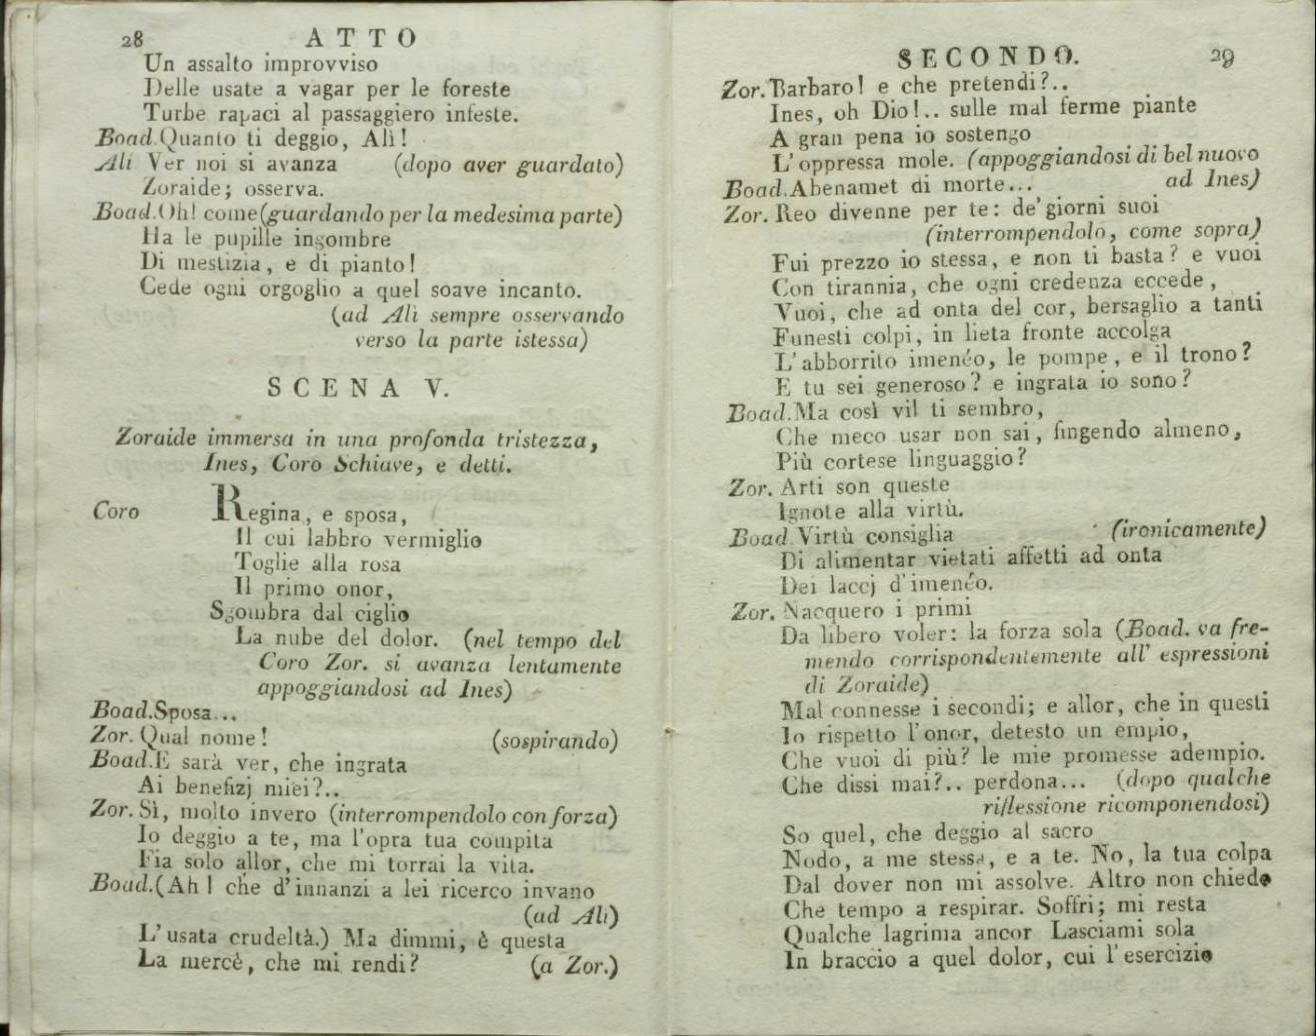 28 ATTO
Un assalto improvviso
Delle usate a vagar per le foreste
Turbe rapaci al passaggiero infeste.
Boad. Quanto ti deggio, Alì!
Alì Ver noi si avanza (dopo aver guardato)
Zoraide; osserva.
Boad. Oh! come (guardando per la medesima parte)
Ha le pupille ingombre
Di mestizia, e di pianto!
Cede ogni orgoglio a quel soave incanto.
(ad Alì sempre osservando
verso la parte istessa)
SCENA V.
Zoraide immersa in una profonda tristezza,
Ines, Coro Schiave, e detti.
Coro Regina, e sposa,
Il cui labbro vermiglio
Toglie alla rosa
Il primo onor,
Sgombra dal ciglio
La nube del dolor. (nel tempo del
Coro Zor. si avanza lentamente
appoggiandosi ad Ines)
Boad. Sposa...
Zor. Qual nome! (sospirando)
Boad. E sarà ver, che ingrata
Ai benefizj miei?..
Zor. Sì, molto invero (interrompendolo con forza)
Io deggio a te, ma l'opra tua compita
Fia solo allor, che mi torrai la vita.
Boad. (Ah! che d'innanzi a lei ricerco invano
(ad Alì)
L'usata crudeltà.) Ma dimmi, è questa
La mercè, che mi rendi? (a Zor.)
SECONDO. 29
Zor. Barbaro! e che pretendi?..
Ines, oh Dio!.. sulle mal ferme piante
A gran pena io sostengo
L'oppressa mole. (appoggiandosi di bel nuovo
Boad. Abenamet di morte... ad Ines)
Zor. Reo divenne per te: de' giorni suoi
(interrompendolo, come sopra)
Fui prezzo io stessa, e non ti basta? e vuoi
Con tirannia, che ogni credenza eccede,
Vuoi, che ad onta del cor, bersaglio a tanti
Funesti colpi, in lieta fronte accolga
L'abborrito imenéo, le pompe, e il trono?
E tu sei generoso? e ingrata io sono?
Boad. Ma così vil ti sembro,
Che meco usar non sai, fingendo almeno,
Più cortese linguaggio?
Zor. Arti son queste
Ignote alla virtù.
Boad. Virtù consiglia (ironicamente)
Di alimentar vietati affetti ad onta
Dei laccj d'imenéo.
Zor. Nacquero i primi
Da libero voler: la forza sola (Boad. va fre-
mendo corrispondentemente all' espressioni
di Zoraide)
Mal connesse i secondi; e allor, che in questi
Io rispetto l'onor, detesto un empio,
Che vuoi di più? le mie promesse adempio.
Che dissi mai?.. perdona... (dopo qualche
riflessione ricomponendosi)
So quel, che deggio al sacro
Nodo, a me stessa, e a te. No, la tua colpa
Dal dover non mi assolve. Altro non chiedo
Che tempo a respirar. Soffri; mi resta
Qualche lagrima ancor Lasciami sola
In braccio a quel dolor, cui l'esercizio